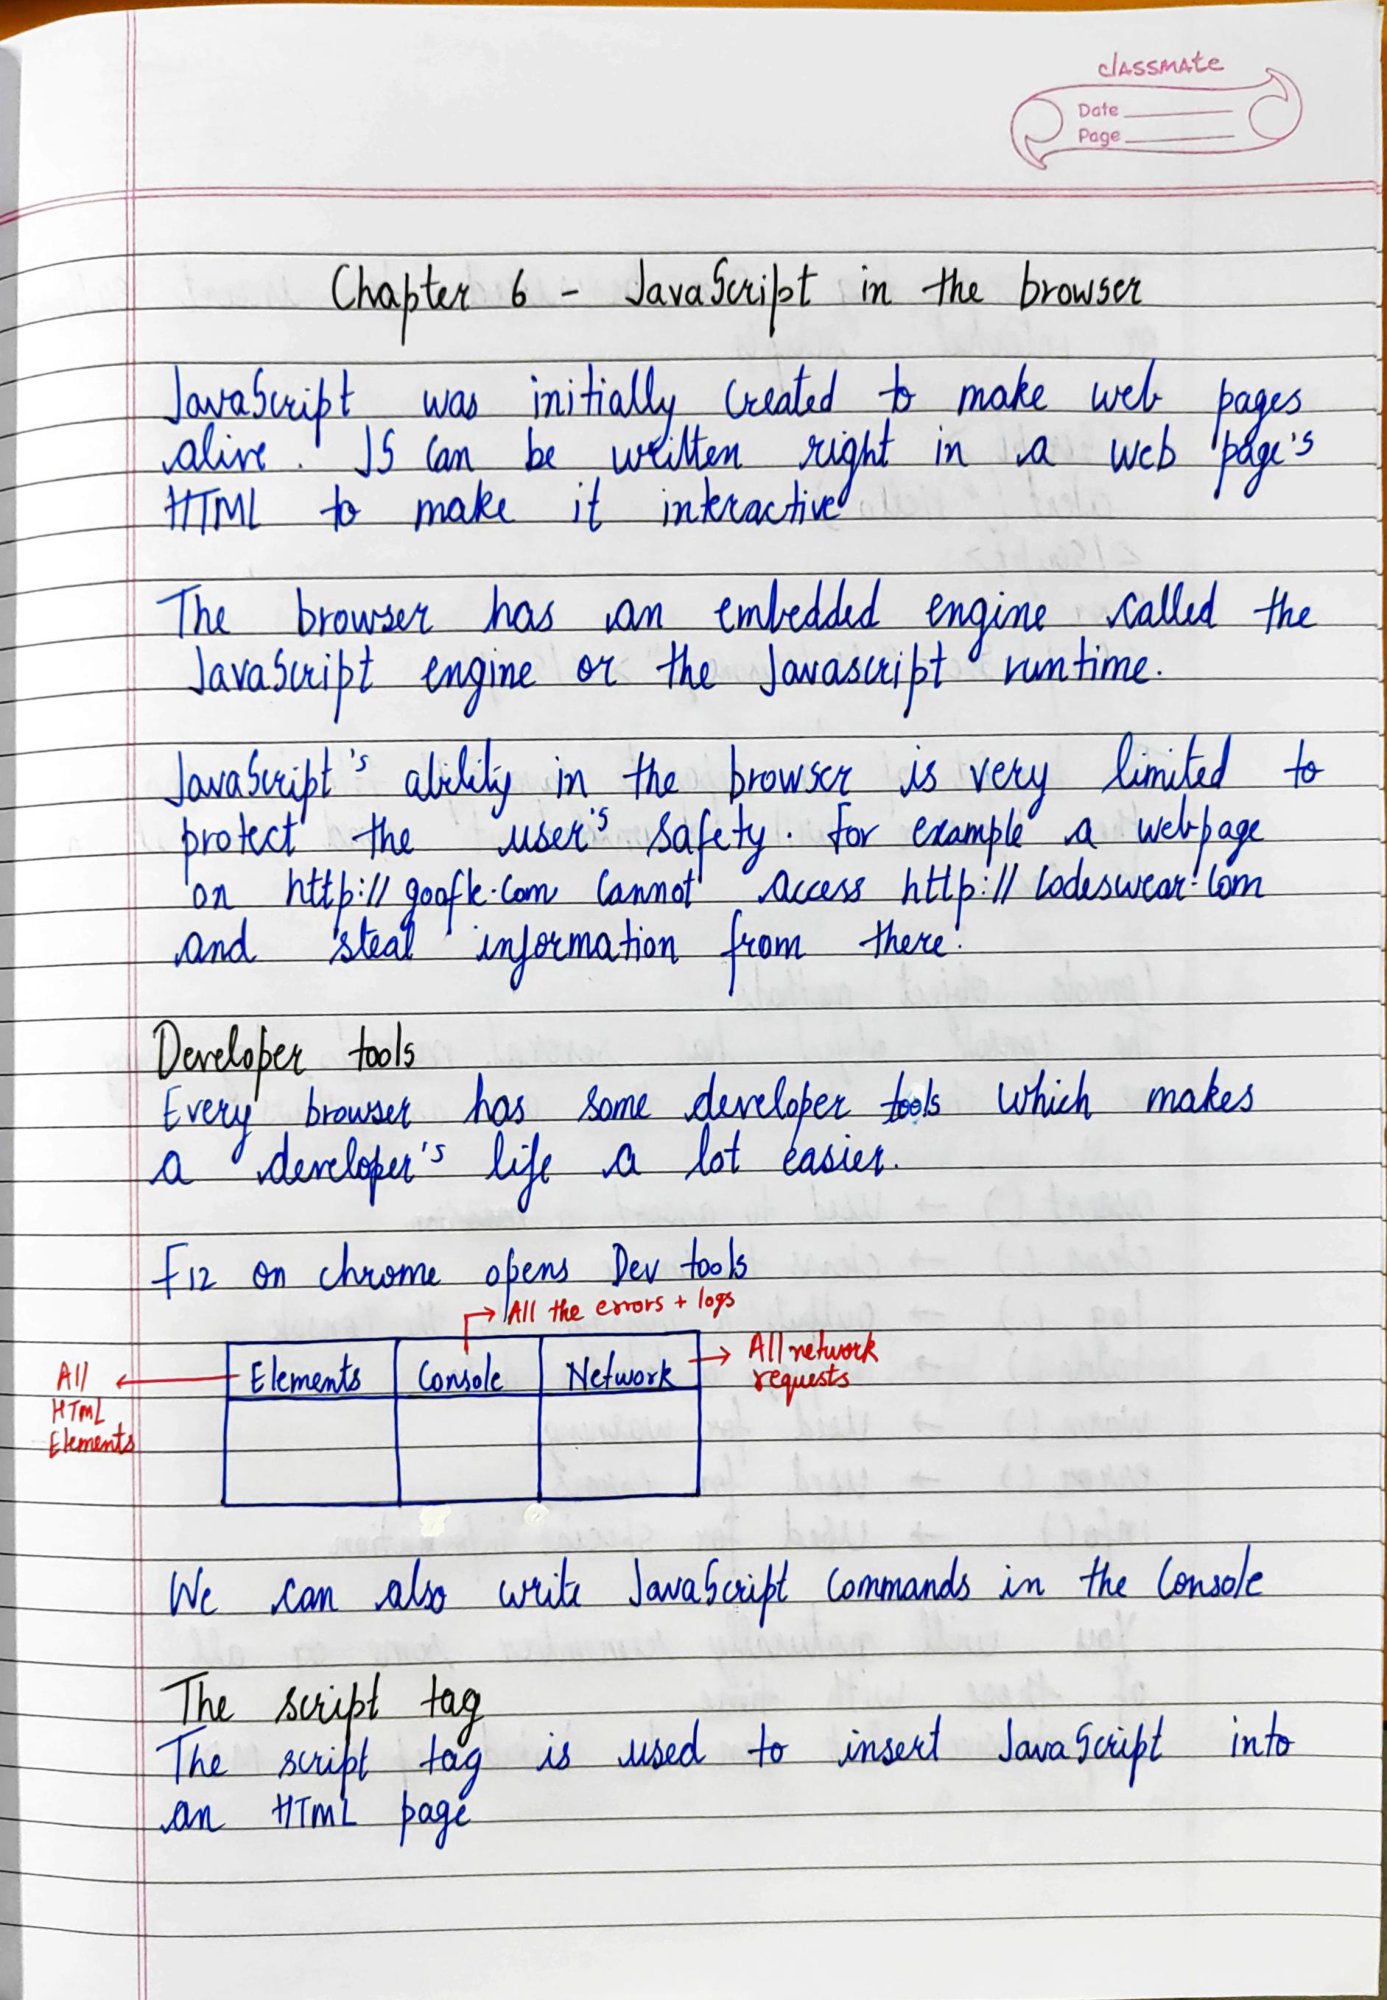 classmate
Date
Page
Chapter 6 - JavaScript in the browser
JavaScript was initially created to make web pages
alive. JS can be written right in a web page's
HTML to make it interactive
The browser has an embedded engine called the
JavaScript engine or the Javascript runtime.
JavaScript's ability in the browser is very limited to
protect the user's safety. For example a webpage
on http://google.com cannot access http://codeswear.com
and steal information from there.
Developer tools
Every browser has some developer tools which makes
a developer's life a lot easier.
F12 on chrome opens Dev tools
All the errors + logs
Elements Console Network
All network
requests
All
HTML
Elements
We can also write JavaScript commands in the Console
The script tag
The script tag is used to insert JavaScript into
an HTML page